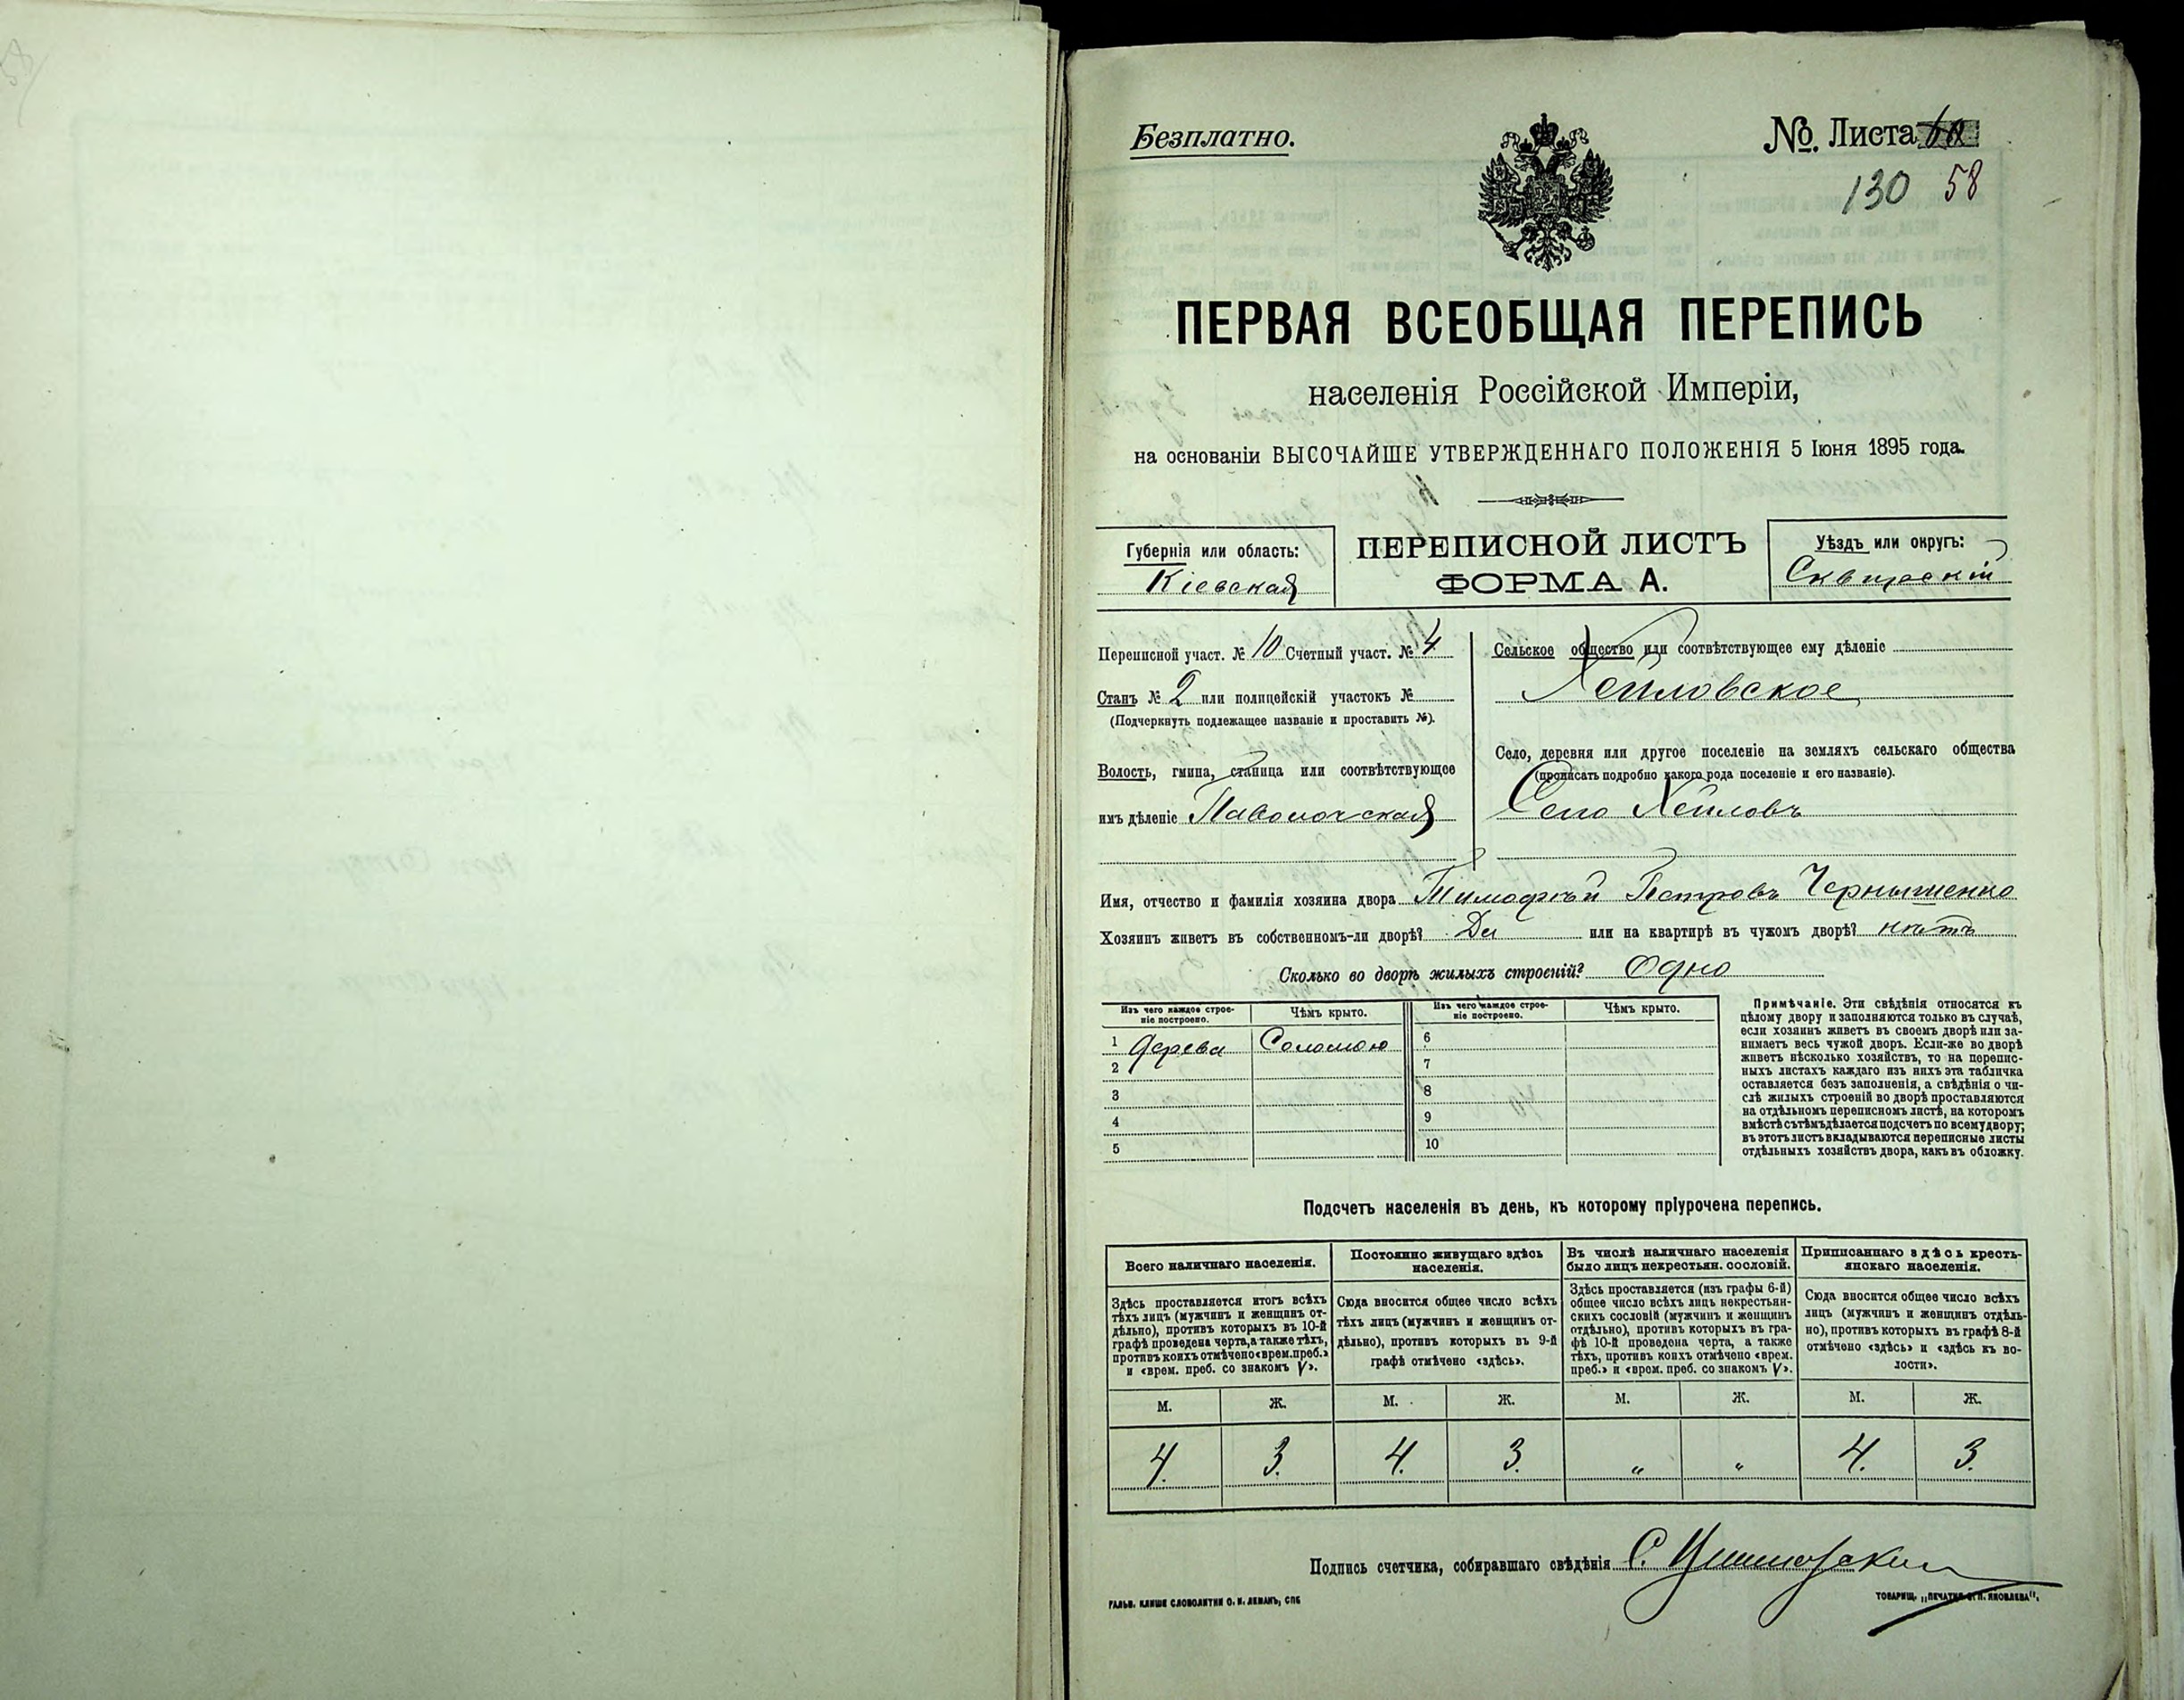 Безплатно.
№ Листа
130 58
ПЕРВАЯ ВСЕОБЩАЯ ПЕРЕПИСЬ
населенія Россійской Имперіи,
на основаніи ВЫСОЧАЙШЕ УТВЕРЖДЕННАГО ПОЛОЖЕНІЯ 5 Іюня 1895 года.
Губернія или область:
Кіевская
ПЕРЕПИСНОЙ ЛИСТЪ
ФОРМА А.
Уѣздъ или округъ:
Сквирскій
Переписной участ. № 10 Счетный участ. № 4
Станъ № 2 или полицейскій участокъ №
(Подчеркнуть подлежащее названіе и проставить №).
Волость, гмина, станица или соотвѣтствующее
имъ дѣленіе Паволочская
Сельское общество или соотвѣтствующее ему дѣленіе
Хейловское
Село, деревня или другое поселеніе на земляхъ сельскаго общества
(прописать подробно какого рода поселеніе и его названіе).
Село Хейловъ
Имя, отчество и фамилія хозяина двора Тимофѣй Петровъ Чернышенко
Хозяинъ живетъ въ собственномъ-ли дворѣ? Да или на квартирѣ въ чужомъ дворѣ? нѣтъ
Сколько во дворѣ жилыхъ строеній? Одно
Изъ чего каждое строе-
ніе построено.
Чѣмъ крыто.
Изъ чего каждое строе-
ніе построено.
Чѣмъ крыто.
1 Дерева Соломою 6
2 7
3 8
4 9
5 10
Примѣчаніе. Эти свѣдѣнія относятся къ
цѣлому двору и заполняются только въ случаѣ,
если хозяинъ живетъ въ своемъ дворѣ или за-
нимаетъ весь чужой дворъ. Если-же во дворѣ
живетъ нѣсколько хозяйствъ, то на перепис-
ныхъ листахъ каждаго изъ нихъ эта табличка
оставляется безъ заполненія, а свѣдѣнія о чи-
слѣ жилыхъ строеній во дворѣ проставляются
на отдѣльномъ переписномъ листѣ, на которомъ
вмѣстѣ съ тѣмъ дѣлается подсчетъ по всему двору;
въ этотъ листъ вкладываются переписные листы
отдѣльныхъ хозяйствъ двора, какъ въ обложку.
Подсчетъ населенія въ день, къ которому пріурочена перепись.
Всего наличнаго населенія.
Здѣсь проставляется итогъ всѣхъ
тѣхъ лицъ (мужчинъ и женщинъ от-
дѣльно), противъ которыхъ въ 10-й
графѣ проведена черта, а также тѣхъ,
противъ коихъ отмѣчено «врем. преб.»
и «врем. преб. со знакомъ V».
Постоянно живущаго здѣсь
населенія.
Сюда вносится общее число всѣхъ
тѣхъ лицъ (мужчинъ и женщинъ от-
дѣльно), противъ которыхъ въ 9-й
графѣ отмѣчено «здѣсь».
Въ числѣ наличнаго населенія
было лицъ некрестьян. сословій.
Здѣсь проставляется (изъ графы 6-й)
общее число всѣхъ лицъ некрестьян-
скихъ сословій (мужчинъ и женщинъ
отдѣльно), противъ которыхъ въ гра-
фѣ 10-й проведена черта, а также
тѣхъ, противъ коихъ отмѣчено «врем.
преб.» и «врем. преб. со знакомъ V».
Приписаннаго здѣсь кресть-
янскаго населенія.
Сюда вносится общее число всѣхъ
лицъ (мужчинъ и женщинъ отдѣль-
но), противъ которыхъ въ графѣ 8-й
отмѣчено «здѣсь» и «здѣсь къ во-
лости».
М. Ж. М. Ж. М. Ж. М. Ж.
4. 3. 4. 3. " " 4. 3.
Подпись счетчика, собиравшаго свѣдѣнія С.
ГАЛЬВ. КЛИШЕ СЛОВОЛИТНИ О. И. ЛЕМАНЪ, СПБ
ТОВАРИЩ. „ПЕЧАТНЯ С. П. ЯКОВЛЕВА".